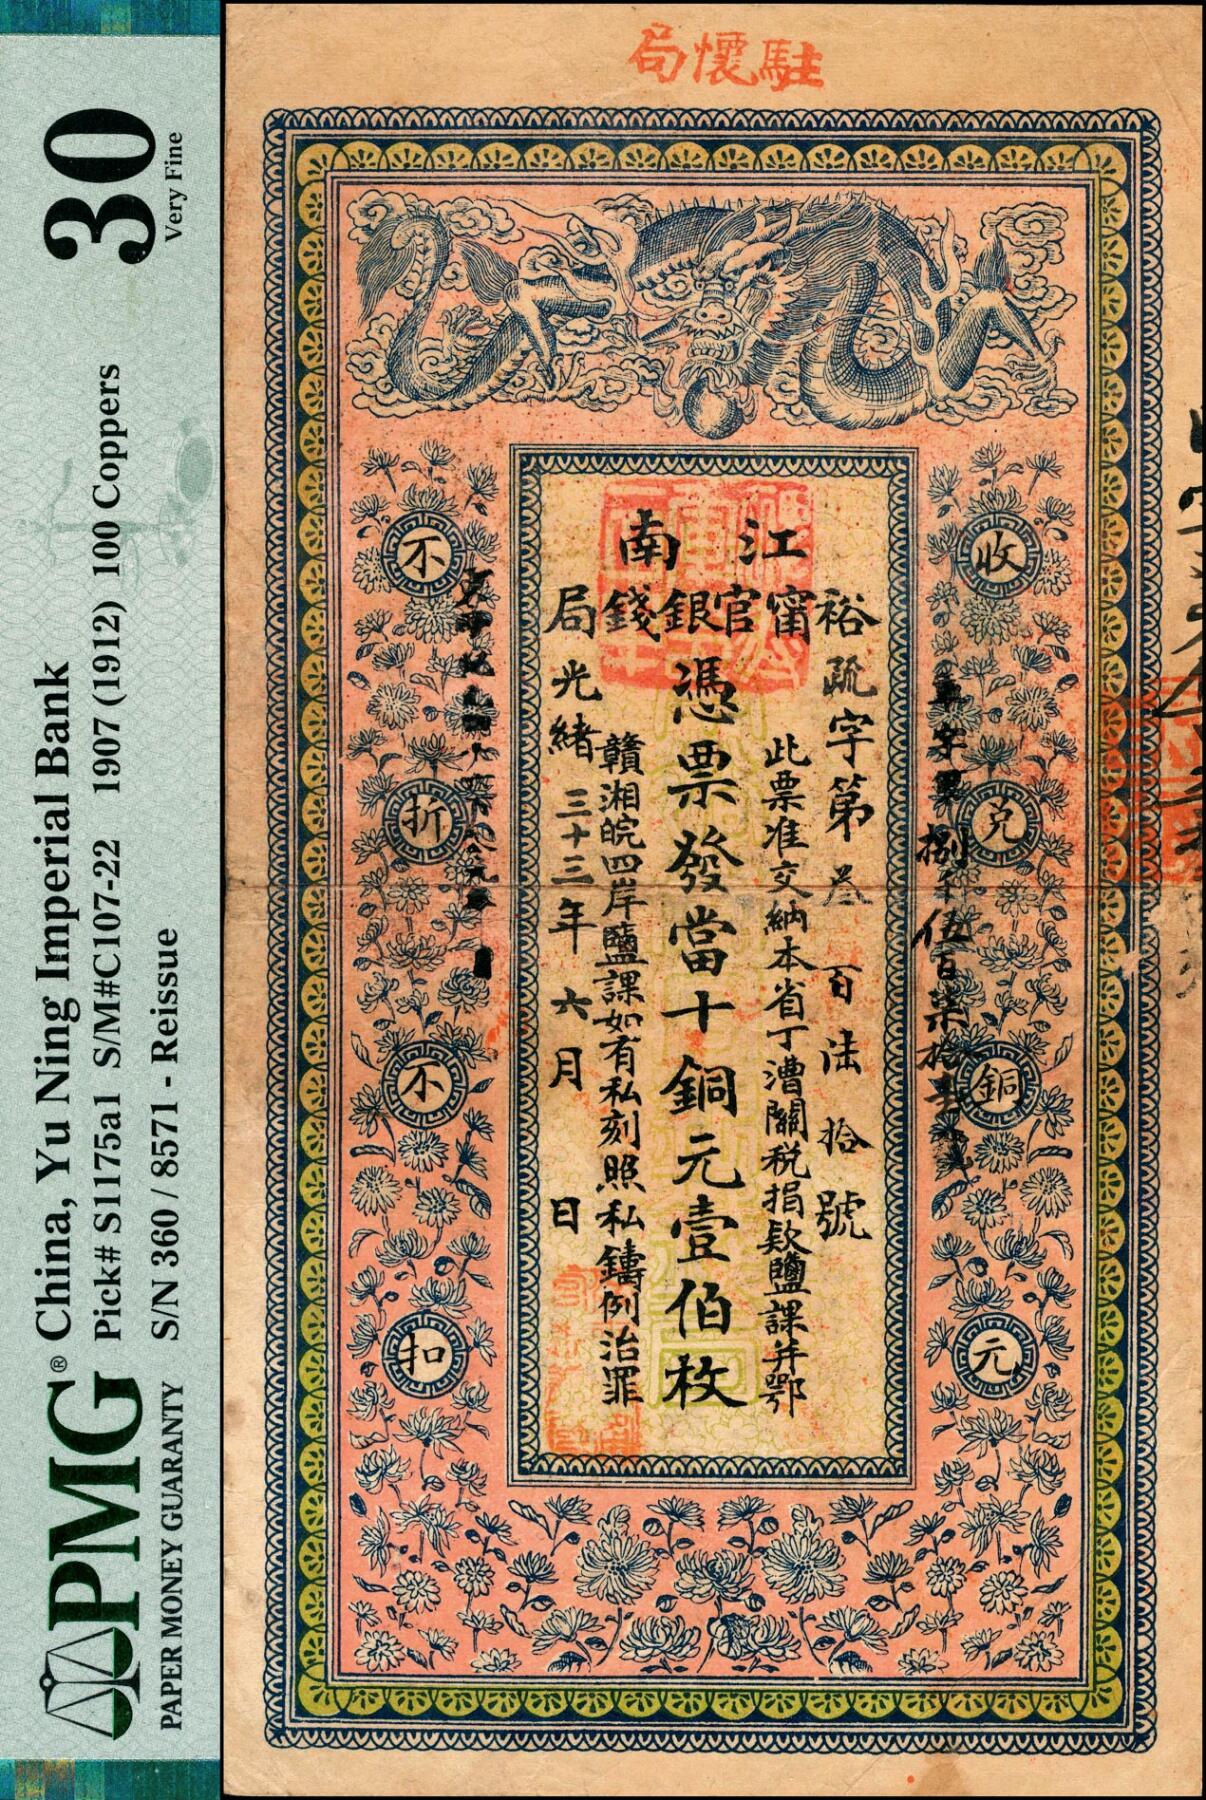 PMG® China, Yu Ning Imperial Bank
Pick# S1175a1 S/M#C107-22 1907 (1912) 100 Coppers
PAPER MONEY GUARANTY S/N 360 / 8571 - Reissue
30
Very Fine
駐懷局
江南
甯官銀錢局
裕疏字第叁百陆拾號
此票准交納本省丁漕關税捐欵鹽課并鄂
憑票發當十銅元壹伯枚
贛湘皖四岸鹽課如有私刻照私鑄例治罪
光緒三十三年六月日
收兑銅元
不折不扣
字第捌千伍百柒拾